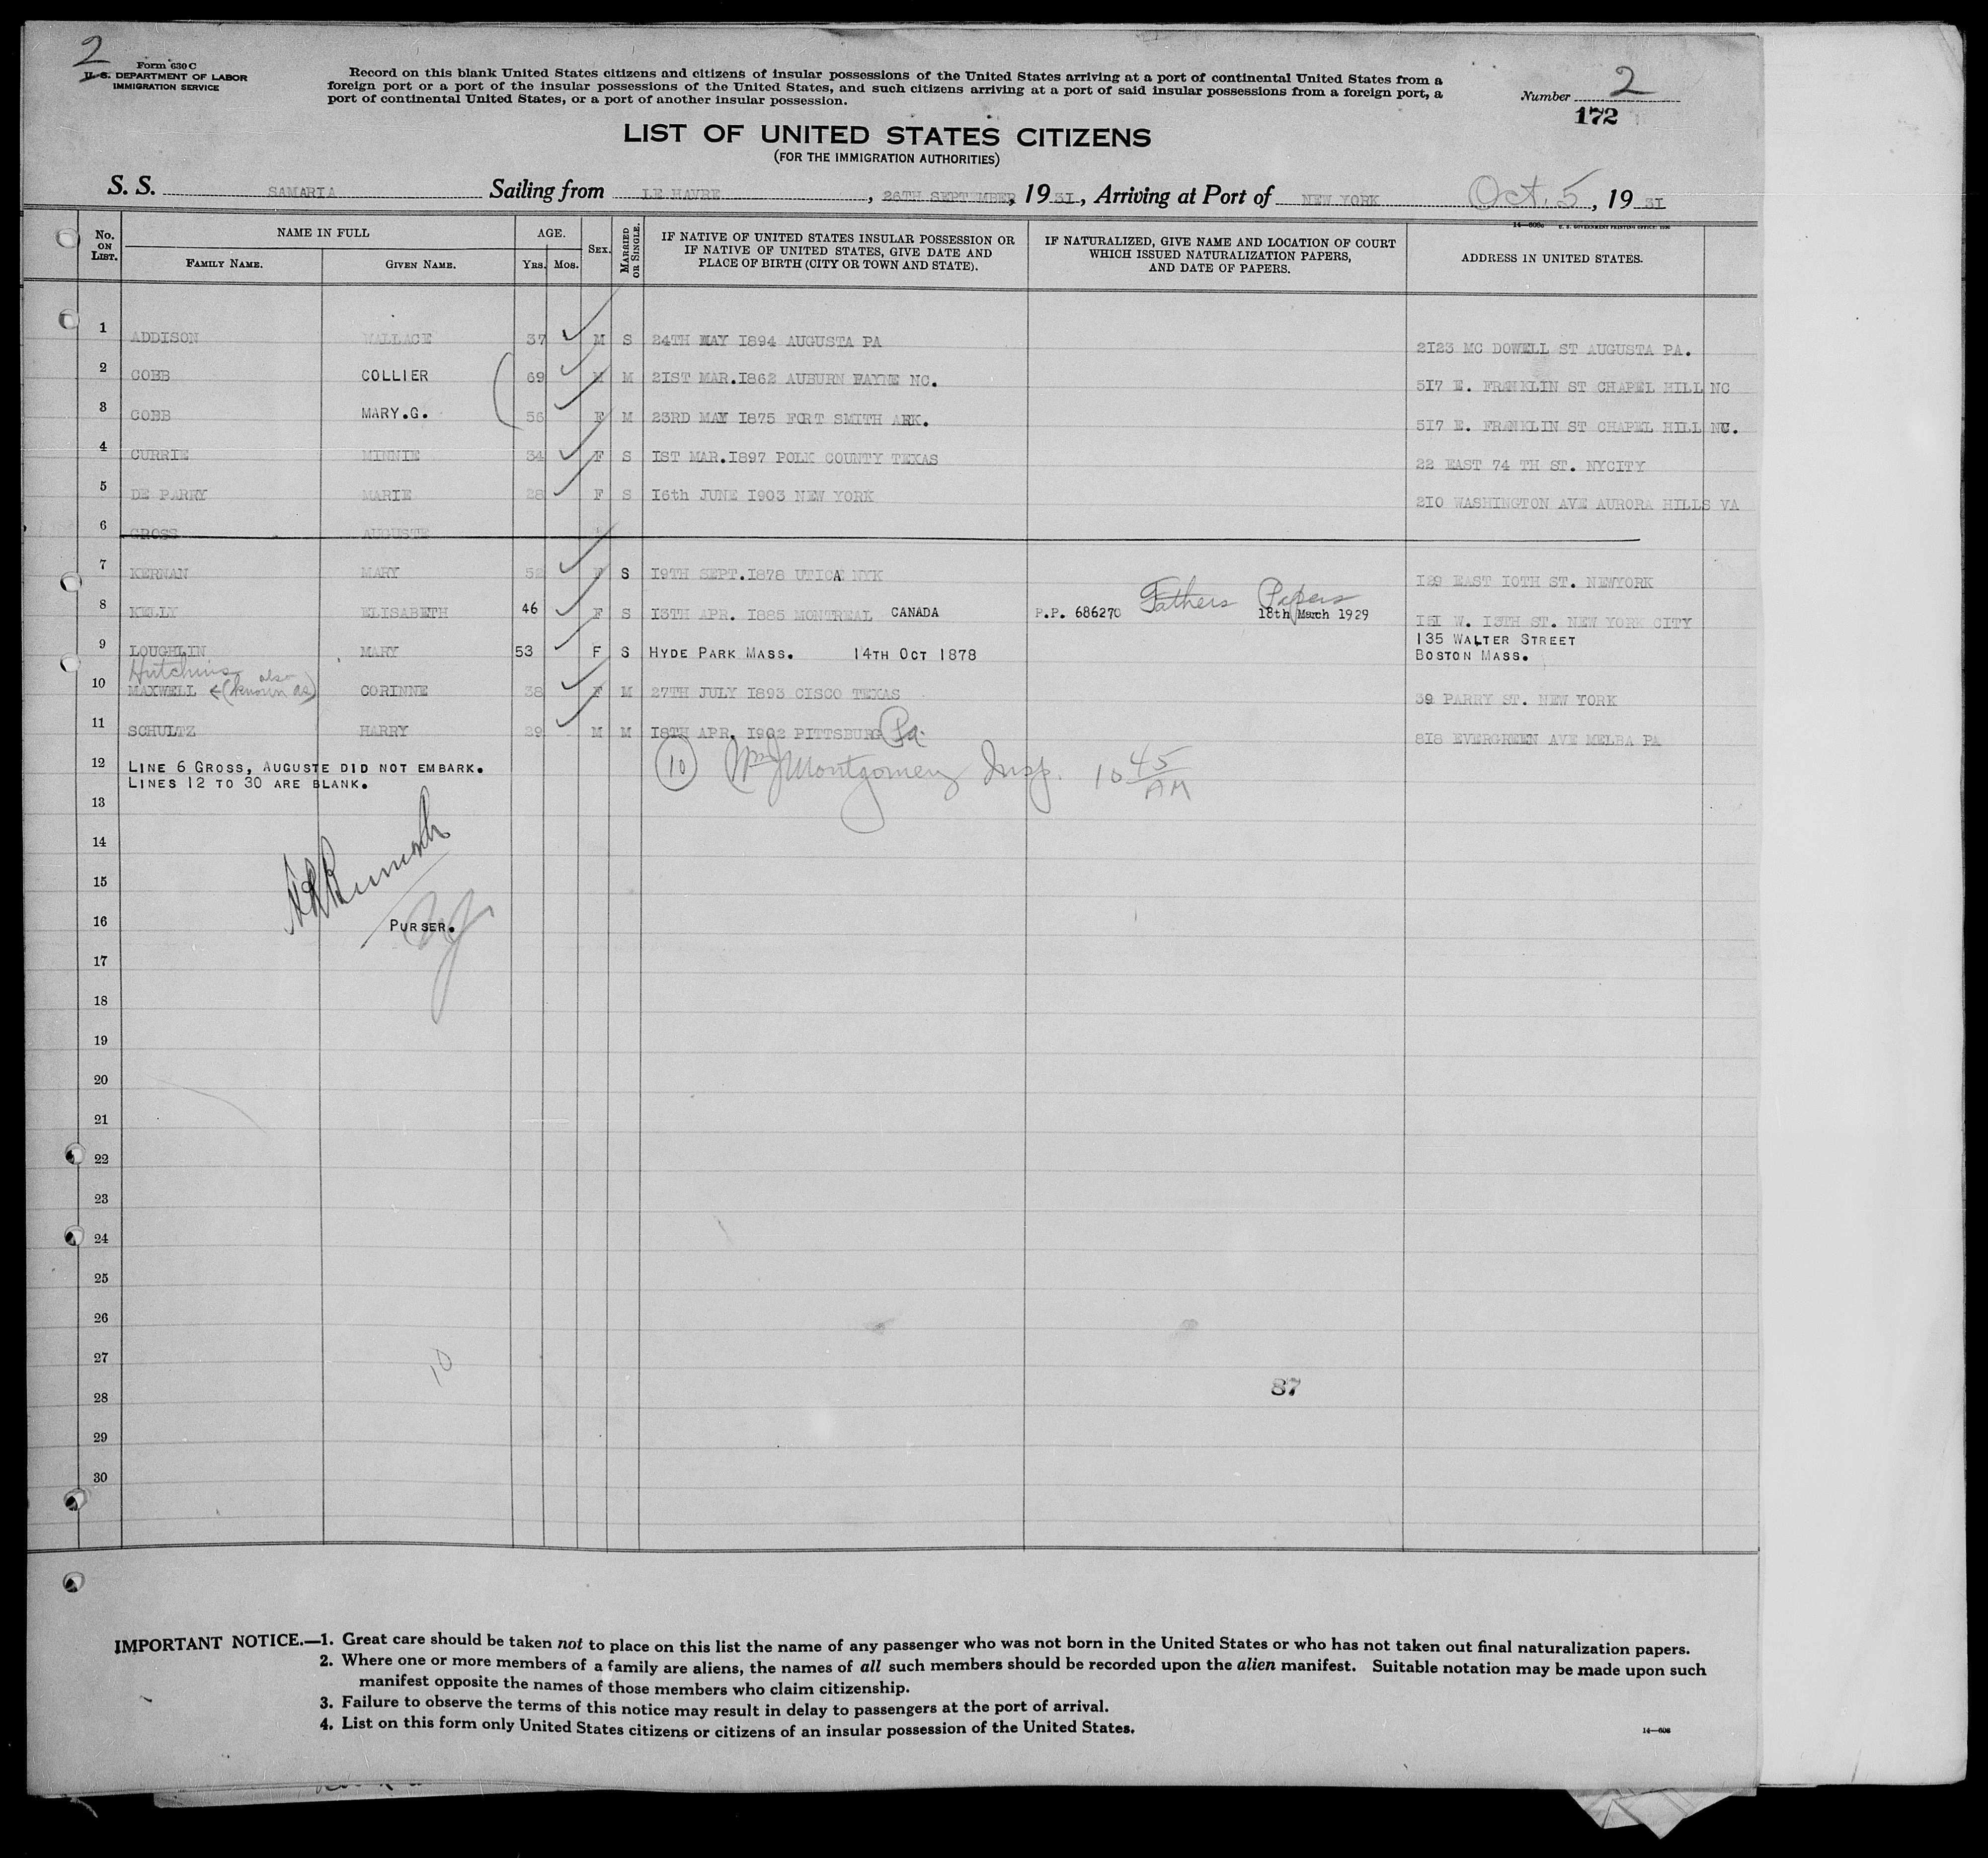 2
Form 630 C
U. S. DEPARTMENT OF LABOR
IMMIGRATION SERVICE
Record on this blank United States citizens and citizens of insular possessions of the United States arriving at a port of continental United States from a
foreign port or a port of the insular possessions of the United States, and such citizens arriving at a port of said insular possessions from a foreign port, a
port of continental United States, or a port of another insular possession.
Number 2
172
LIST OF UNITED STATES CITIZENS
(FOR THE IMMIGRATION AUTHORITIES)
S. S. SAMARIA Sailing from LE HAVRE, 26TH SEPTEMBER, 19 3I, Arriving at Port of NEW YORK Oct. 5, 19 3I
14—608c U. S. GOVERNMENT PRINTING OFFICE: 1930
No. ON LIST. NAME IN FULL FAMILY NAME. GIVEN NAME. AGE. YRS. MOS. SEX. MARRIED OR SINGLE. IF NATIVE OF UNITED STATES INSULAR POSSESSION OR IF NATIVE OF UNITED STATES, GIVE DATE AND PLACE OF BIRTH (CITY OR TOWN AND STATE). IF NATURALIZED, GIVE NAME AND LOCATION OF COURT WHICH ISSUED NATURALIZATION PAPERS, AND DATE OF PAPERS. ADDRESS IN UNITED STATES.
1 ADDISON WALLACE 37 M S 24TH MAY I894 AUGUSTA PA 2I23 MC DOWELL ST AUGUSTA PA.
2 COBB COLLIER 69 M M 2IST MAR.I862 AUBURN WAYNE NC. 5I7 E. FRANKLIN ST CHAPEL HILL NC
3 COBB MARY.G. 56 F M 23RD MAY I875 FORT SMITH ARK. 5I7 E. FRANKLIN ST CHAPEL HILL NC.
4 CURRIE MINNIE 34 F S IST MAR.I897 POLK COUNTY TEXAS 22 EAST 74 TH ST. NYCITY
5 DE PARRY MARIE 28 F S I6th JUNE I903 NEW YORK 2I0 WASHINGTON AVE AURORA HILLS VA
6 GROSS AUGUSTE
7 KERNAN MARY 52 F S I9TH SEPT.I878 UTICA NYK I29 EAST IOTH ST. NEWYORK
8 KELLY ELISABETH 46 F S I3TH APR. I885 MONTREAL CANADA P.P. 686270 Fathers Papers 18th March 1929 I5I W. I3TH ST. NEW YORK CITY
9 LOUGHLIN MARY 53 F S HYDE PARK MASS. 14TH OCT 1878 135 WALTER STREET
BOSTON MASS.
Hutchins also
10 MAXWELL (known as) CORINNE 38 F M 27TH JULY I893 CISCO TEXAS 39 PARRY ST. NEW YORK
11 SCHULTZ HARRY 29 M M I8TH APR. I902 PITTSBURG Pa. 8I8 EVERGREEN AVE MELBA PA
12 LINE 6 GROSS, AUGUSTE DID NOT EMBARK.
LINES 12 TO 30 ARE BLANK.
10 Wm J Montgomery Insp. 10 45 AM
13
14
15
16 PURSER.
17
18
19
20
21
22
23
24
25
26
27 10
28 87
29
30
IMPORTANT NOTICE.—1. Great care should be taken not to place on this list the name of any passenger who was not born in the United States or who has not taken out final naturalization papers.
2. Where one or more members of a family are aliens, the names of all such members should be recorded upon the alien manifest. Suitable notation may be made upon such
manifest opposite the names of those members who claim citizenship.
3. Failure to observe the terms of this notice may result in delay to passengers at the port of arrival.
4. List on this form only United States citizens or citizens of an insular possession of the United States.
14—608